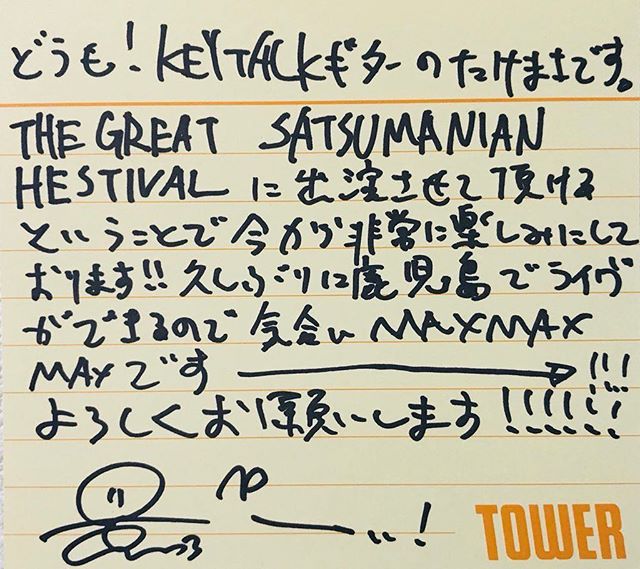 どうも!KEYTALKギターのたけまさです。
THE GREAT SATSUMANIAN
HESTIVALに出演させて頂ける
ということで今から非常に楽しみにして
おります!!久しぶりに鹿児島でライヴ
ができるので気合いMAXMAX
MAXです→!!!
よろしくお願いします!!!!!!
や
ーい!
TOWER